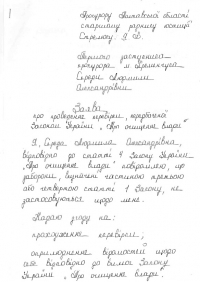 Прокурору Полтавської області
старшому раднику юстиції
Стрелюку. З. Д.
Першого заступника
прокурора м Кременчука
Середи Людмили
Олександрівни
Заява
про проведення перевірки, передбаченої
Законом України „Про очищення влади”
Я, Середа Людмила Олександрівна,
відповідно до статті 4 Закону України
„Про очищення влади” повідомляю, що
заборони, визначені частиною третьою
або четвертою статті 1 Закону, не
застосовуються щодо мене.
Надаю згоду на:
проходження перевірки;
оприлюднення відомостей щодо
себе відповідно до вимог Закону
України „Про очищення влади”.